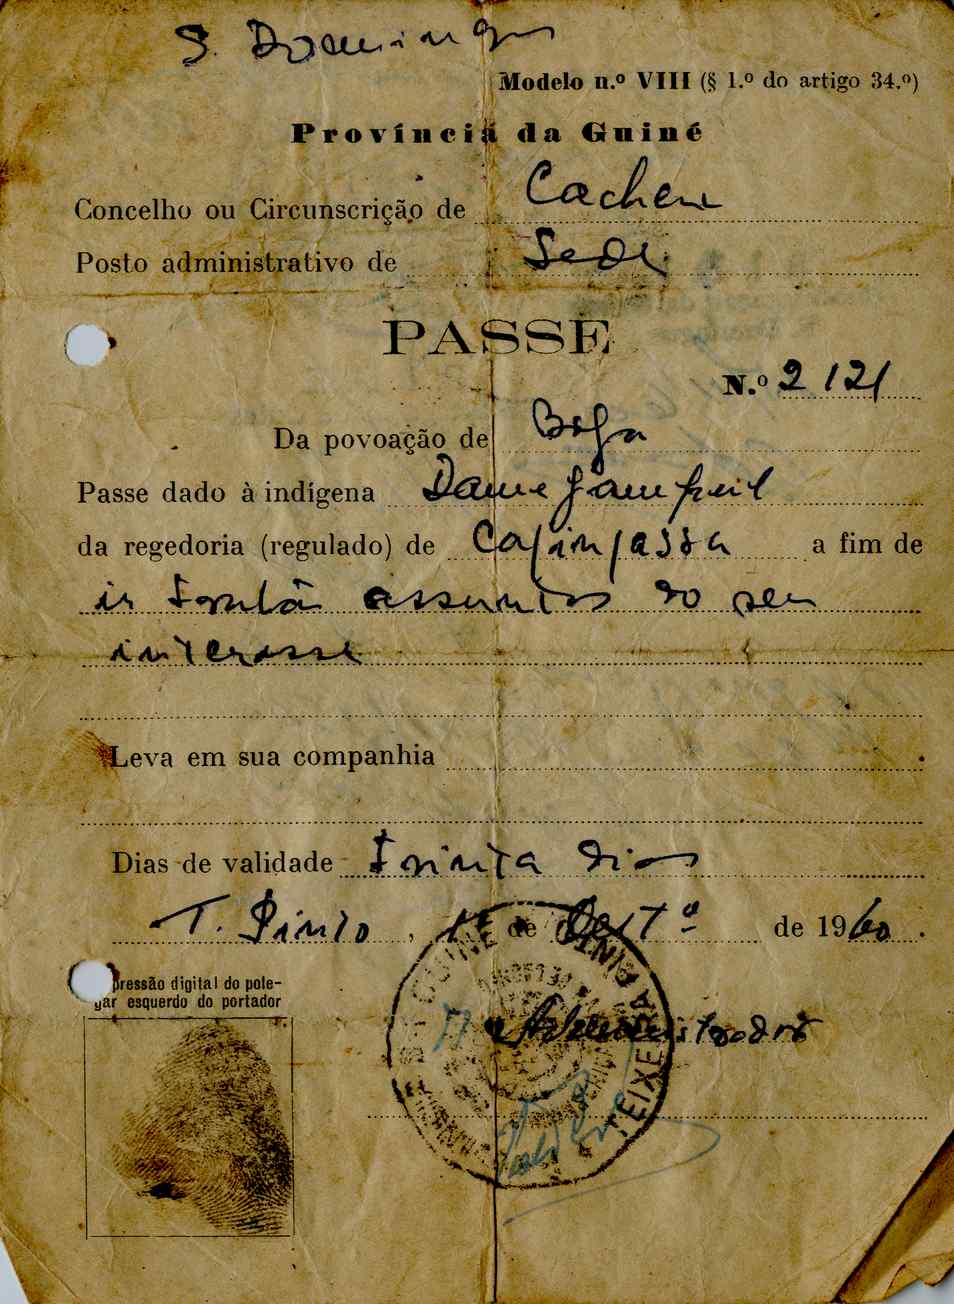 S. Domingos
Modelo n.º VIII (§ 1.º do artigo 34.º)
Província da Guiné
Concelho ou Circunscrição de Cacheu
Posto administrativo de Sede
PASSE
N.º 2121
Da povoação de
Passe dado à indígena Dame
da regedoria (regulado) de a fim de
ir tratar assuntos do seu
interesse
Leva em sua companhia
Dias de validade Trinta dias
T. Pinto, de de 1960.
pressão digital do pole-
gar esquerdo do portador
O Administrador
TEIXEIRA PINTO
GUINÉ